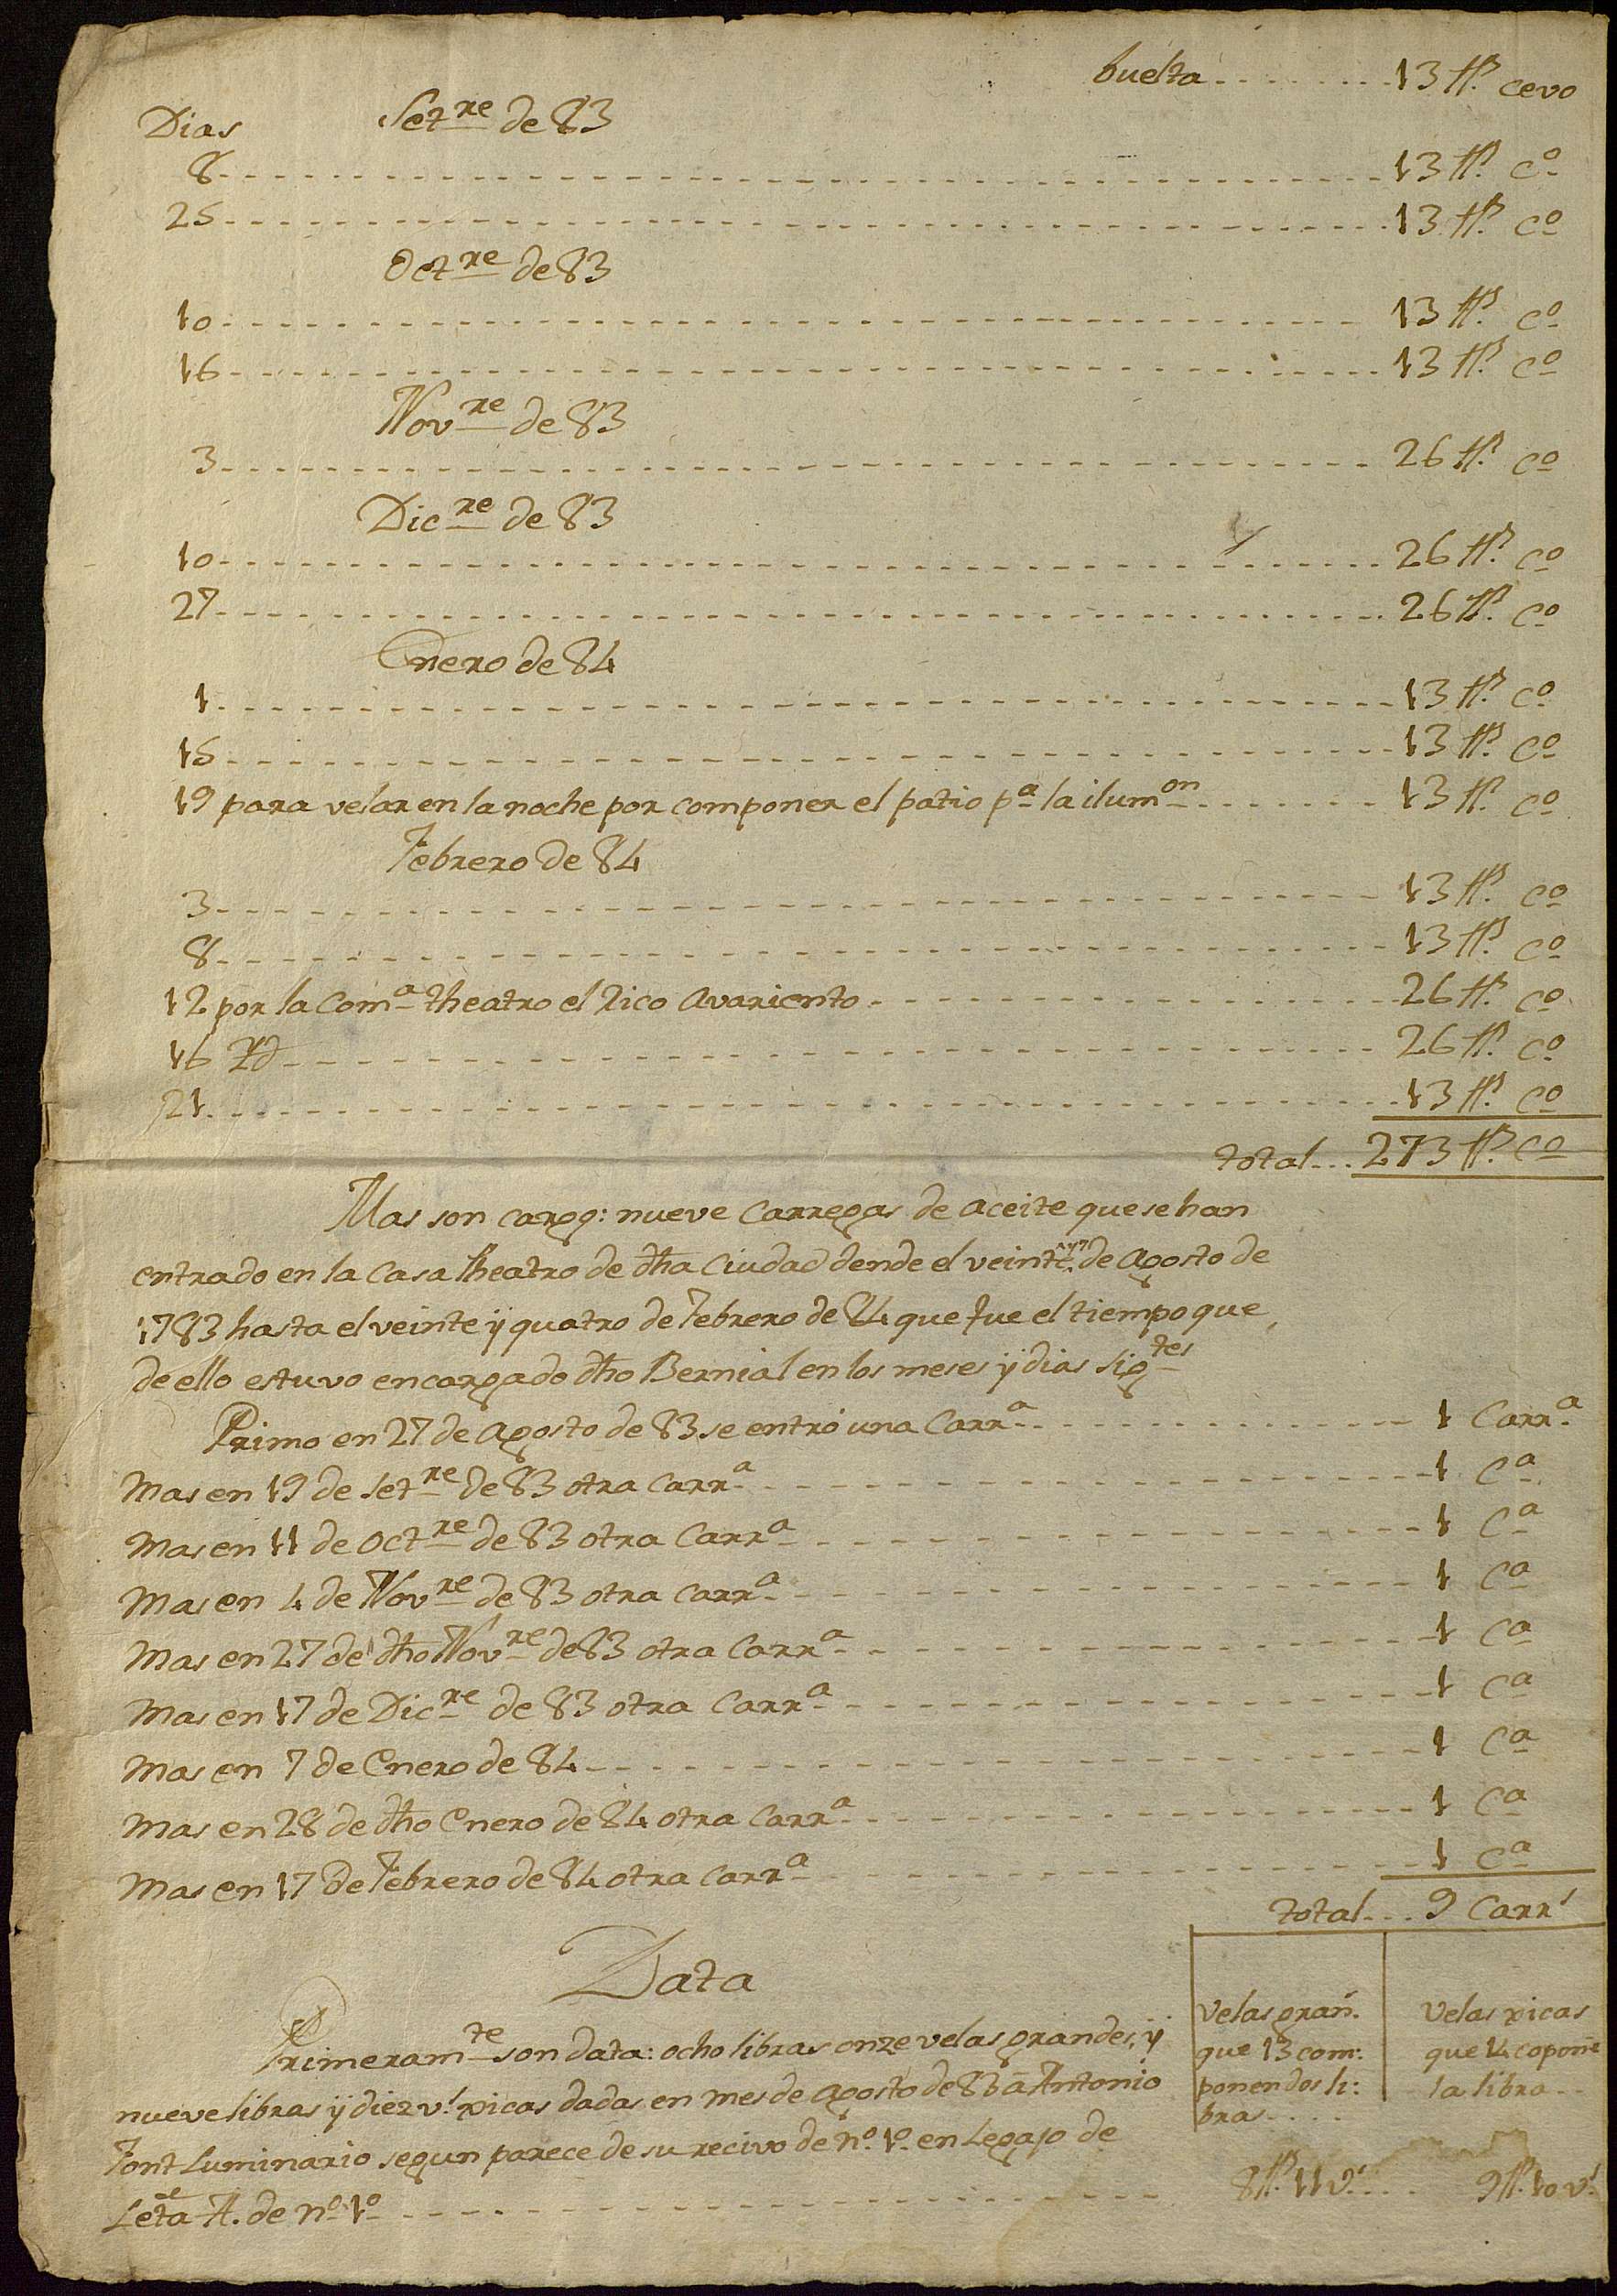 buelta - - - - - - - - 13 ℔. cevo
Dias Setre de 83
8 - - - - - - - - 13 ℔. Co
25 - - - - - - - - 13 ℔. Co
Octre de 83
10 - - - - - - - - 13 ℔. Co
16 - - - - - - - - 13 ℔. Co
Novre de 83
3 - - - - - - - - 26 ℔. Co
Dicre de 83
10 - - - - - - - - 26 ℔. Co
27 - - - - - - - - 26 ℔. Co
Enero de 84
1 - - - - - - - - 13 ℔. Co
15 - - - - - - - - 13 ℔. Co
19 para velar en la noche por componer el patio pa la ilumon - - - - - - 13 ℔. Co
Febrero de 84
3 - - - - - - - - 13 ℔. Co
8 - - - - - - - - 13 ℔. Co
12 por la Coma theatro el Rico Avariento - - - - - - - - 26 ℔. Co
16 Yd - - - - - - - - 26 ℔. Co
21 - - - - - - - - 13 ℔. Co
total - - - 273 ℔. Co
Mas son carg: nueve Carregas de aceite que se han
entrado en la Casa theatro de dha Ciudad dende el veinte de Agosto de
1783 hasta el veinte ÿ quatro de Febrero de 84 que fue el tiempo que
de ello estuvo encargado dho Bernial en los meses ÿ dias sigtes
Primo en 27 de Agosto de 83 se entró una Carra - - - - - - - - 1 Carra
Mas en 19 de Setre de 83 otra Carra - - - - - - - - 1 Ca
Mas en 11 de Octre de 83 otra Carra - - - - - - - - 1 Ca
Mas en 4 de Novre de 83 otra Carra - - - - - - - - 1 Ca
Mas en 27 de dho Novre de 83 otra Carra - - - - - - - - 1 Ca
Mas en 17 de Dicre de 83 otra Carra - - - - - - - - 1 Ca
Mas en 7 de Enero de 84 - - - - - - - - 1 Ca
Mas en 28 de dho Enero de 84 otra Carra - - - - - - - - 1 Ca
Mas en 17 de Febrero de 84 otra Carra - - - - - - - - 1 Ca
total - - - 9 Carrs
Data
Primeramte son data: ocho libras onze velas grandes, ÿ
nueve libras ÿ diez vs xicas dadas en mes de Agosto de 83 â Antonio
Font Luminario segun parece de su recivo de no. 1o. en Legajo de
Letra A. de no 1o - - - - - - - -
Velas gran.
que 13 com:
ponen dos li:
bras - - - -
8 ℔. 11 vs. - - -
Velas xicas
que 14 coponē
la libra - -
9 ℔. 10 vs.